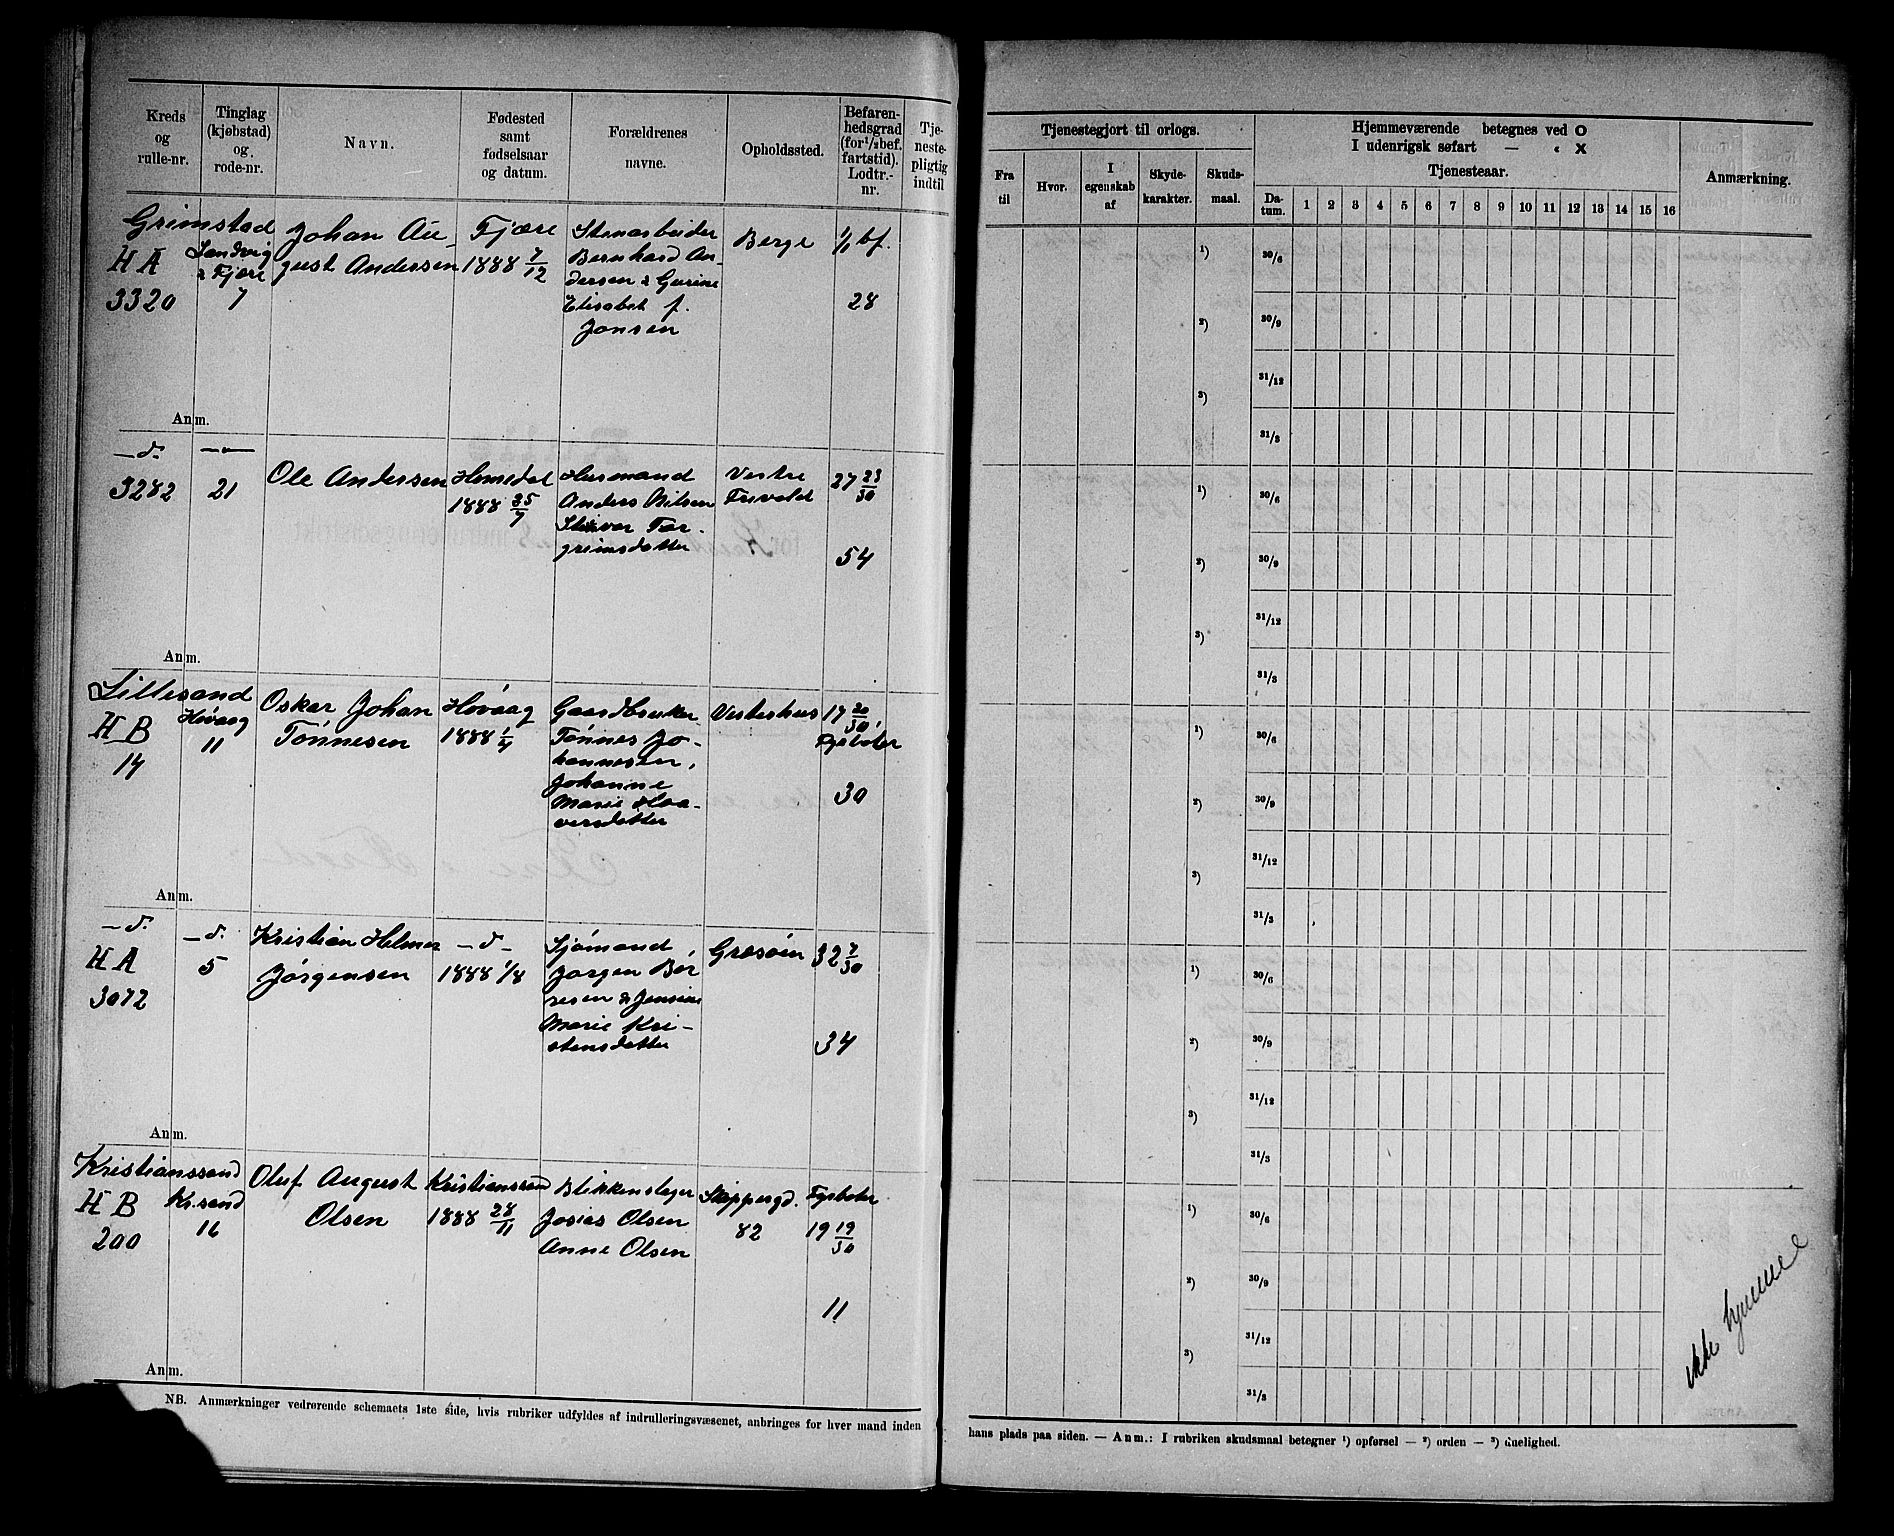 Kreds
og
rulle-nr.
Tinglag
(kjøbstad)
og
rode-nr.
Navn.
Fødested
samt
fødselsaar
og datum.
Forældrenes
navne.
Opholdssted.
Befaren-
hedsgrad
(for ½ bef.
fartstid).
Lodtr.-
nr.
Tje-
neste-
pligtig
indtil
Grimstad
HA
3320
Landvig
& Fjære
7
Johan Au-
gust Andersen
Fjære
1888 7/12
Stenarbeider
Bernhard An-
dersen & Gurine
Elisabet f.
Jonsen
Berge
1/1 bf.
28
Anm.
—d.
3282
—"—
21
Ole Andersen
Homedal
1888 25/7
Husmand
Anders Nilsen
Torgrimsdatter
Vestre
Frivold
27 23/30
54
Anm.
Lillesand
HB
14
Høvaag
11
Oskar Johan
Tønnesen
Høvaag
1888 1/4
Gaardbruker
Tønnes Jo-
hannesen,
Johanne
Marie Haa-
versdatter
Vestrehus
17 20/30
Fyrbøter
30
Anm.
—d.
HA
3072
—d.
5
Kristian Helmer
Jørgensen
—d—
1888 1/8
Sjømand
Jørgen Bør
resen & Jensine
Marie Kri-
stensdatter
Grosøen
32 7/30
34
Anm.
Kristianssand
HB
200
Kr.sand
16
Oluf August
Olsen
Kristianssand
1888 28/11
Blikkenslager
Josias Olsen
Anne Olsen
Skippergd.
82
Fyrbøter
19 19/30
11
Anm.
NB. Anmærkninger vedrørende schemaets 1ste side, hvis rubriker udfyldes af indrulleringsvæsenet, anbringes for hver mand inden
Tjenestegjort til orlogs.
Hjemmeværende betegnes ved O
I udenrigsk søfart — « X
Tjenesteaar.
Anmærkning.
Fra
til
Hvor.
I
egenskab
af
Skyde-
karakter.
Skuds-
maal.
Da-
tum.
1 2 3 4 5 6 7 8 9 10 11 12 13 14 15 16
¹) 30/6
²) 30/9
³) 31/12
31/3
¹) 30/6
²) 30/9
³) 31/12
31/3
¹) 30/6
²) 30/9
³) 31/12
31/3
¹) 30/6
²) 30/9
³) 31/12
31/3
¹) 30/6
²) 30/9
³) 31/12
31/3
ikke hjemme
hans plads paa siden. — Anm.: I rubriken skudsmaal betegner ¹) opførsel — ²) orden — ³) duelighed.